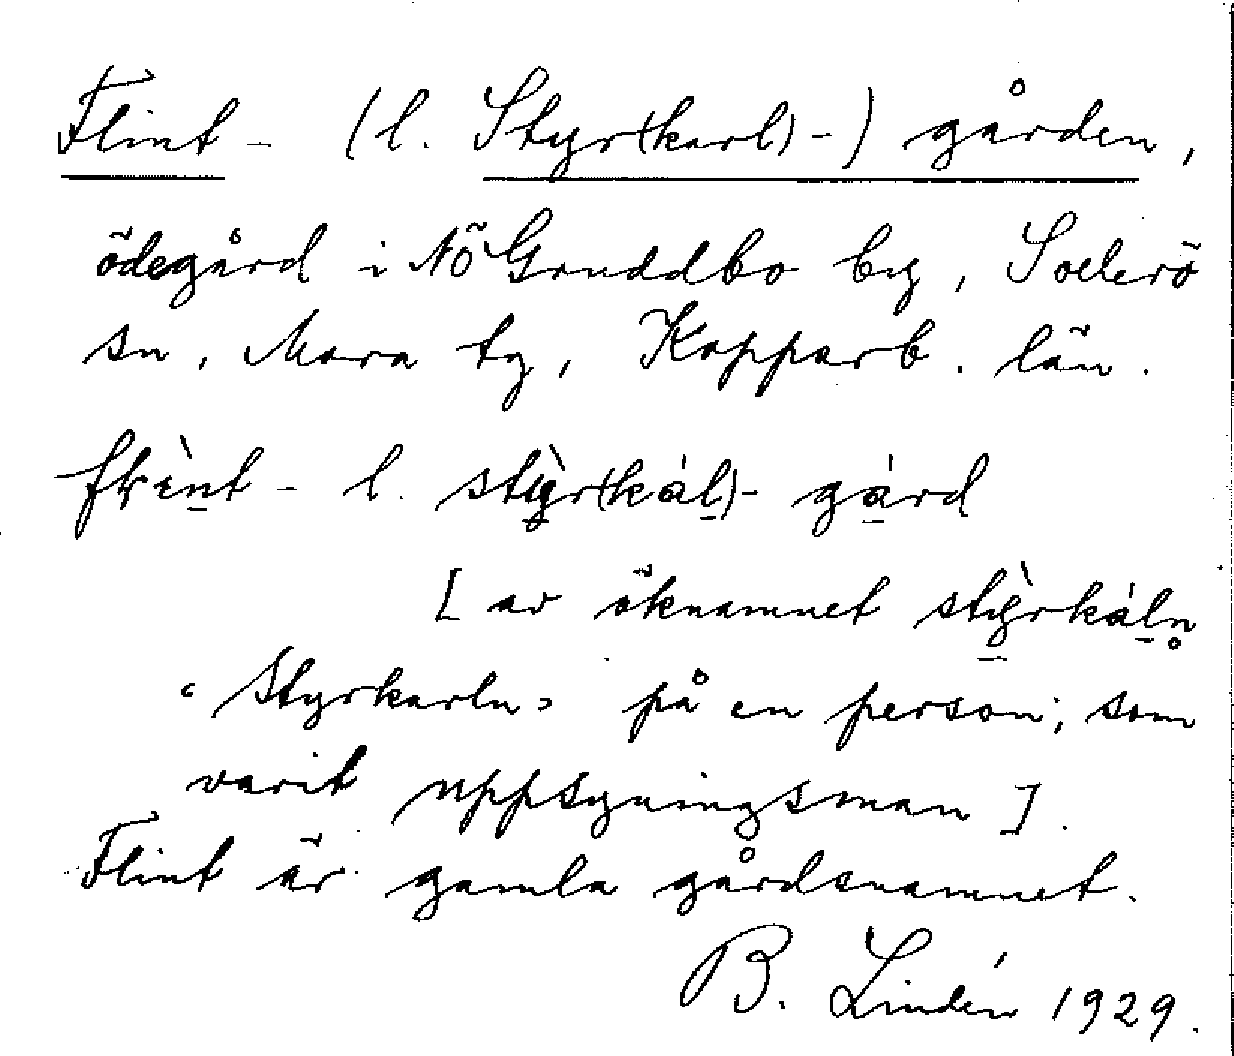 Flint- (l. Styr(karl)-) gården,
ödegård i NÖ Gruddbo by, Sollerö
sn, Mora tg, Kopparb. län.
fḷi̇̀nt- l. stỳ̠r(kàl̠)- gá̠rd
[av öknamnet stỳ̠rkàl̠n̥
"Styrkarln" på en person, som
varit uppsyningsman].
Flint är gamla gårdsnamnet.
B. Lindén 1929.